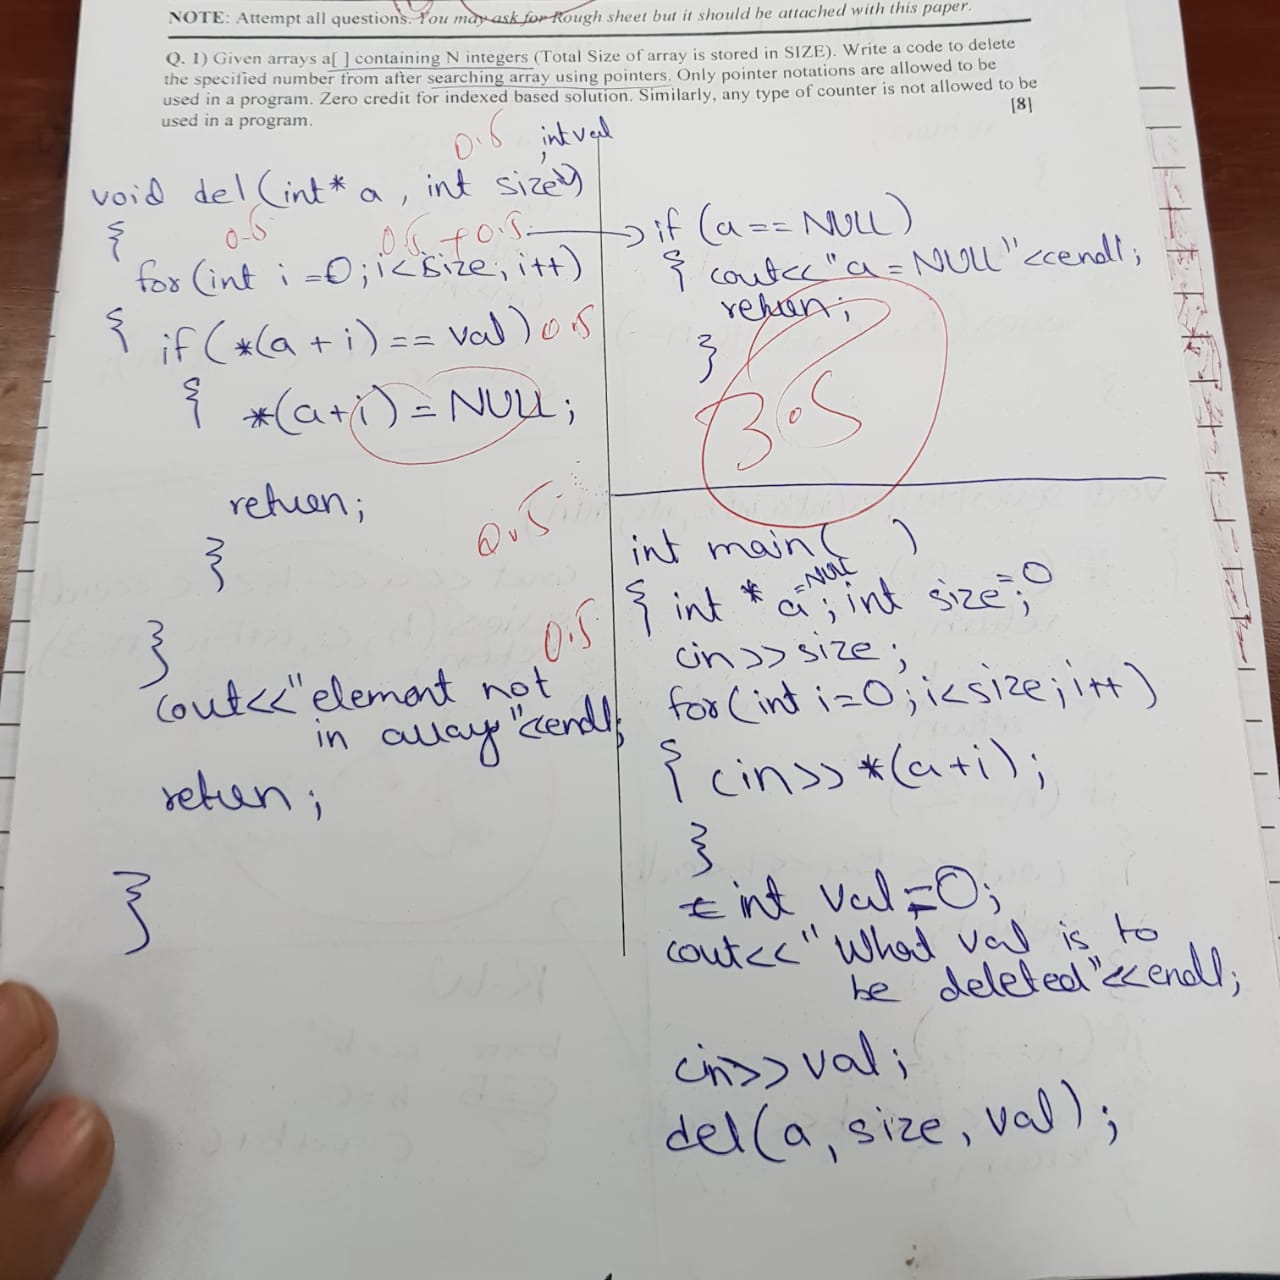 NOTE: Attempt all questions. You may ask for Rough sheet but it should be attached with this paper.
Q. 1) Given arrays a[ ] containing N integers (Total Size of array is stored in SIZE). Write a code to delete
the specified number from after searching array using pointers. Only pointer notations are allowed to be
used in a program. Zero credit for indexed based solution. Similarly, any type of counter is not allowed to be
used in a program.
[8]
0.5
, int val
void del(int* a , int size)
{
0.5
0.5 + 0.5
for(int i =0; i<size; i++)
{ if(*(a + i) == val) 0.5
{ *(a+i) = NULL;
return;
0.5
}
}
0.5
cout<<"element not
in array"<<endl;
return;
}
if (a == NULL)
{ cout<<"a = NULL"<<endl;
return;
}
3.5
int main( )
{ int * a =NULL; int size =0;
cin>>size;
for(int i=0; i<size; i++)
{ cin>> *(a+i);
}
int val =0;
cout<<"What val is to
be deleted"<<endl;
cin>>val;
del(a, size, val);